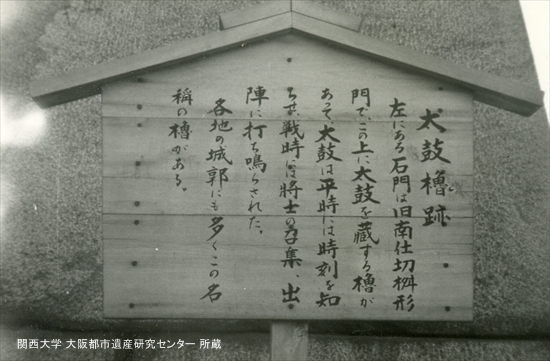 太鼓櫓跡
左にある石門は旧南仕切桝形
門で、この上に太鼓を蔵する櫓が
あって、太鼓は平時には時刻を知
らせ、戦時には将士の召集、出
陣に打ち鳴らされた。
各地の城郭にも多くこの名
称の櫓がある。
関西大学 大阪都市遺産研究センター 所蔵